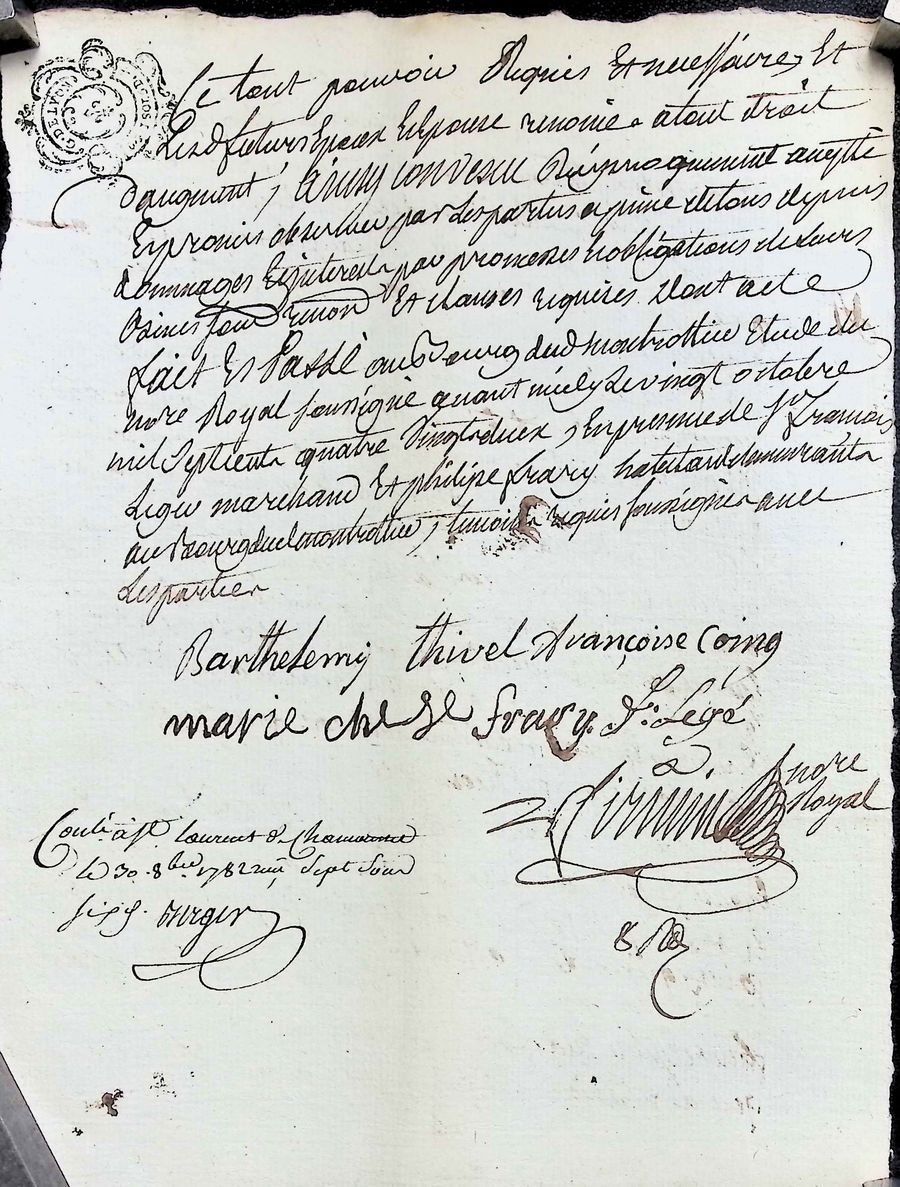 G. DE LYON
Ce tout pouvoir Requis Et necessaire, Et
Lesd futurs Epoux Et Epouse renonce a tout droit
daugment, Ainsy convenu Reciproquement accepté
Et promis observer par Les parties a peine de tous depens
dommages Et interests par promesses Et obligations de Leurs
Biens Et clauses requises. Dont acte
fait Et Passé au Bourg dud montrottier Etude du
nore Royal soussigné avant midy Le vingt octobre
mil Sept cent quatre Vingt deux, En presence de Sr François
Legé marchand Et philipe frary habitants demeurants
au Bourg dud montrottier, temoins requis soussignés avec
Les parties
Barthelemy thivel françoise Coing
marie frary. f: Legé
nore
Royal
Contlé à St. Laurent de Chamousset
le 30. 8bre 1782 Sept sous
six d.
8